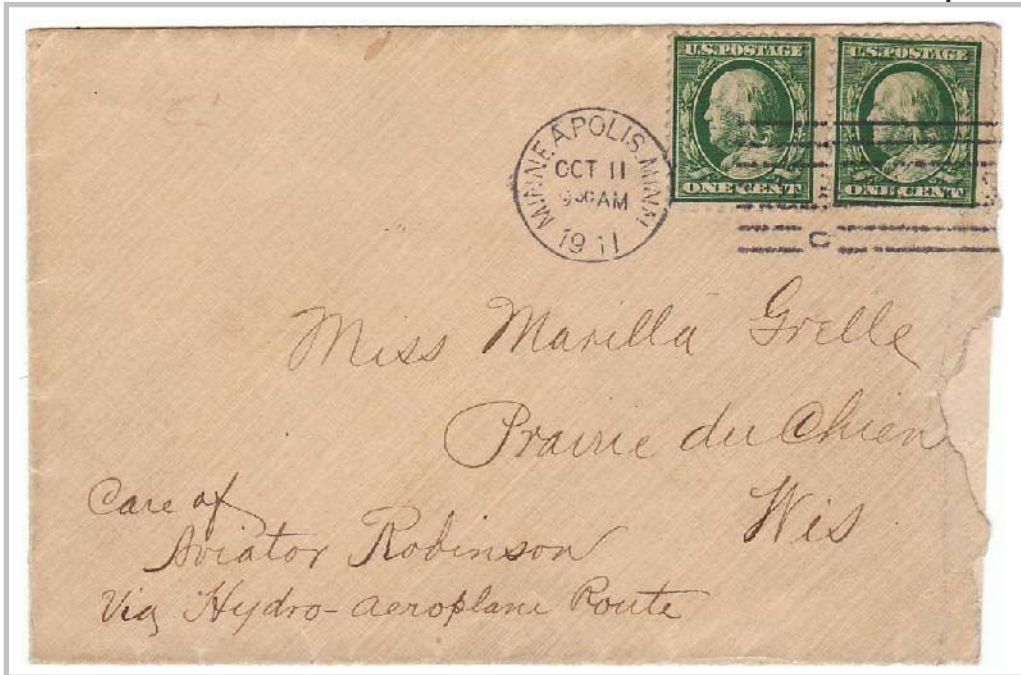 U.S. POSTAGE
ONE CENT
U.S. POSTAGE
ONE CENT
MINNEAPOLIS. MINN.
OCT 11
9 30 AM
1911
Miss Marilla Grelle
Prairie du Chien
Wis
Care of
Aviator Robinson
Via Hydro-aeroplane Route